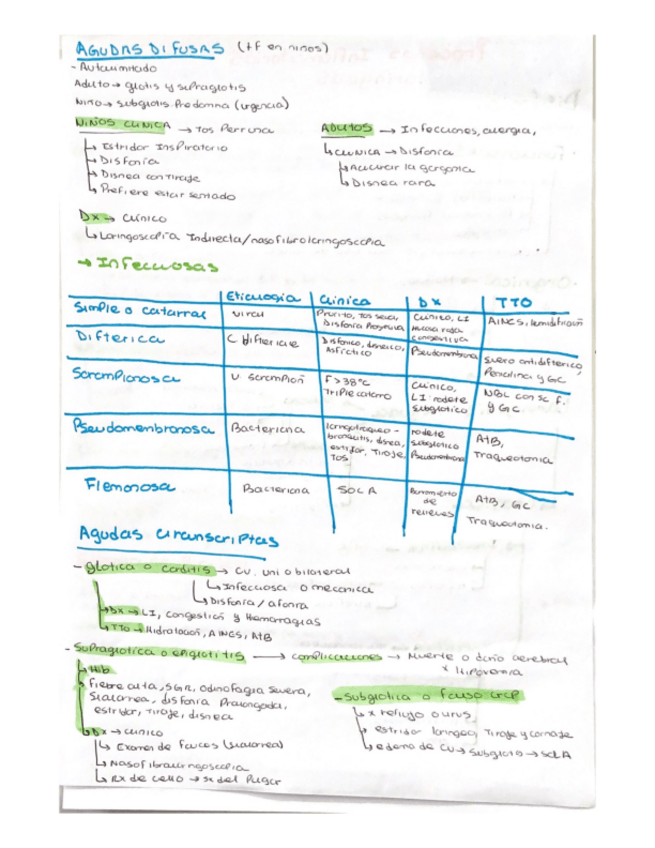 AGUDAS DIFUSAS (+F en niños)
- Autolimitado
Adulto → glotis y supraglotis
Niño → subglotis Predomina (urgencia)
NIÑOS CLINICA → Tos Perruna
↳ Estridor Inspiratorio
↳ Disfonia
↳ Disnea con tiraje
↳ Prefiere estar sentado
ADULTOS → Infecciones, alergia,
↳ CLINICA → Disfonia
↳ Aclarar la garganta
↳ Disnea rara
Dx → Clínico
↳ Laringoscopia Indirecta/nasofibrolaringoscopia
→ Infecciosas
Etiología Clinica Dx TTO
Simple o catarral
Viral
Prurito, tos seca, Disfonia Progresiva
Clinico, LI mucosa roja congestiva
AINES, humidificación
Difterica
C difteriae
Disfonico, disneico, Asfictico
Pseudomembrana
Suero antidifterico, Penicilina y GC
Sarampionosa
V. Sarampion
F >38°C Triple catarro
Clínico, LI: rodete subglotico
NBL con sc F. y GC
Pseudomembranosa
Bacteriana
laringotraqueo-bronquitis, disnea, estridor, Tiraje, Tos
rodete subglotico Pseudomembrana
ATB, Traqueotomia
Flemonosa
Bacteriana
SOCA
Borramiento de relieves
ATB, GC Traqueotomia.
Agudas circunscriptas
- glotica o corditis → CV. uni o bilateral
↳ Infecciosa o mecanica
↳ Disfonia / afonia
↳ Dx → LI, congestion y Hemorragias
↳ TTO → Hidratación, AINES, ATB
- Supraglotica o epiglotitis → complicaciones → Muerte o daño cerebral
x Hipoxemia
↳ Hib
↳ fiebre alta, SGR, odinofagia severa,
Sialorrea, disfonia Prolongada,
estridor, tiraje, disnea
↳ Dx → clinico
↳ Examen de fauces (sialorrea)
↳ Nasofibrolaringoscopia
↳ Rx de cuello → s. del Pulgar
- Subglotica o falso crup
↳ x reflujo o virus
↳ estridor laringeo, Tiraje y cornaje
↳ edema de CV → Subglotis → SCLA